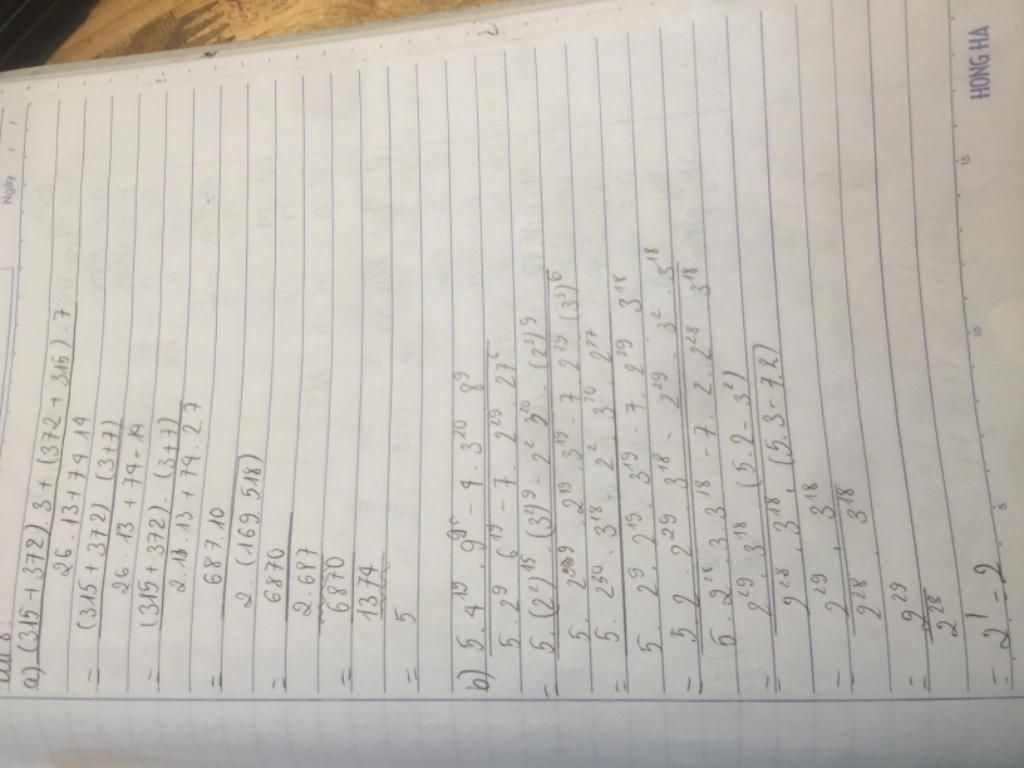 Ngày
Bài 8:
a) (315 + 372) . 3 + (372 + 315) . 7
26 . 13 + 74 . 14
= (315 + 372) . (3 + 7)
26 . 13 + 74 - 14
= (315 + 372) - (3 + 7)
2 . 13 + 74 . 2 7
= 687 . 10
2 . (169 518)
= 6870
2 . 687
= 6870
1374
= 5
b) 5 . 4¹⁵ . 9⁹ - 4 . 3²⁰ 8⁹
5 . 2⁹ 6¹⁹ - 7 . 2²⁹ 27⁶
= 5 . (2²)¹⁵ (3²)⁹ - 2² 3²⁰ . (2³)⁹
5 . 2⁹ 2¹⁹ . 3¹⁹ - 7 2²⁹ (3³)⁶
= 5 . 2³⁰ . 3¹⁸ - 2² . 3²⁰ . 2²⁷
5 . 2⁹ . 2¹⁹ . 3¹⁹ - 7 . 2²⁹ 3¹⁸
= 5 . 2 . 2²⁹ 3¹⁸ - 2²⁹ . 3² . 3¹⁸
5 . 2²⁸ . 3 . 3¹⁸ - 7 . 2 . 2²⁸ 3¹⁸
= 2²⁹ . 3¹⁸ (5 . 2 - 3²)
2²⁸ . 3¹⁸ . (5 . 3 - 7 . 2)
= 2²⁹ . 3¹⁸
2²⁸ . 3¹⁸
= 2²⁹
2²⁸
= 2¹ = 2
5 10 15
HONG HA